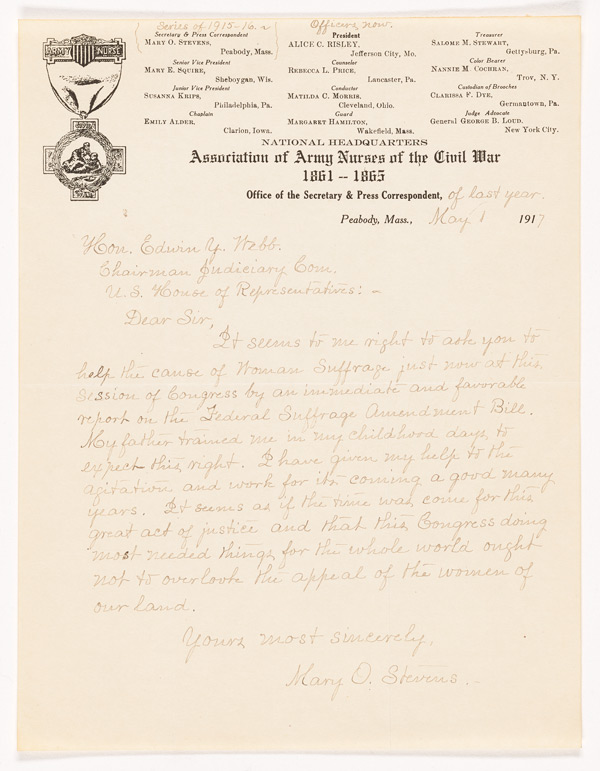 Series of 1915-16.
Officers now.
Secretary & Press Correspondent
MARY O. STEVENS,
Peabody, Mass.
Senior Vice President
MARY E. SQUIRE,
Sheboygan, Wis.
Junior Vice President
SUSANNA KRIPS,
Philadelphia, Pa.
Chaplain
EMILY ALDER,
Clarion, Iowa.
President
ALICE C. RISLEY,
Jefferson City, Mo.
Counselor
REBECCA L. PRICE,
Lancaster, Pa.
Conductor
MATILDA C. MORRIS,
Cleveland, Ohio.
Guard
MARGARET HAMILTON,
Wakefield, Mass.
Treasurer
SALOME M. STEWART,
Gettysburg, Pa.
Color Bearer
NANNIE M. COCHRAN,
Troy, N. Y.
Custodian of Broches
CLARISSA F. DYE,
Germantown, Pa.
Judge Advocate
General GEORGE B. LOUD,
New York City.
ARMY NURSE
NATIONAL HEADQUARTERS
Association of Army Nurses of the Civil War
1861 -- 1865
Office of the Secretary & Press Correspondent, of last year.
Peabody, Mass., May 1 1917
Hon. Edwin Y. Webb.
Chairman Judiciary Com.
U.S. House of Representatives: -
Dear Sir,
It seems to me right to ask you to
help the cause of Woman Suffrage just now at this
session of Congress by an immediate and favorable
report on the Federal Suffrage Amendment Bill.
My father trained me in my childhood days, to
expect this right. I have given my help to the
agitation and work for its coming a good many
years. It seems as if the time was come for this
great act of justice and that this Congress doing
most needed things for the whole world ought
not to overlook the appeal of the women of
our land.
Yours most sincerely,
Mary O. Stevens.